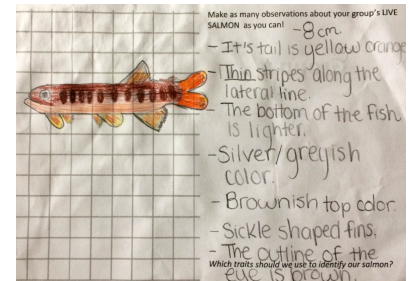 Make as many observations about your group's LIVE
SALMON as you can! -8cm.
- It's tail is yellow orange
- Thin stripes along the
lateral line.
- The bottom of the fish
is lighter.
- Silver/greyish
color.
- Brownish top color.
- Sickle shaped fins.
- The outline of the
Which traits should we use to identify our salmon?
eye is brown.